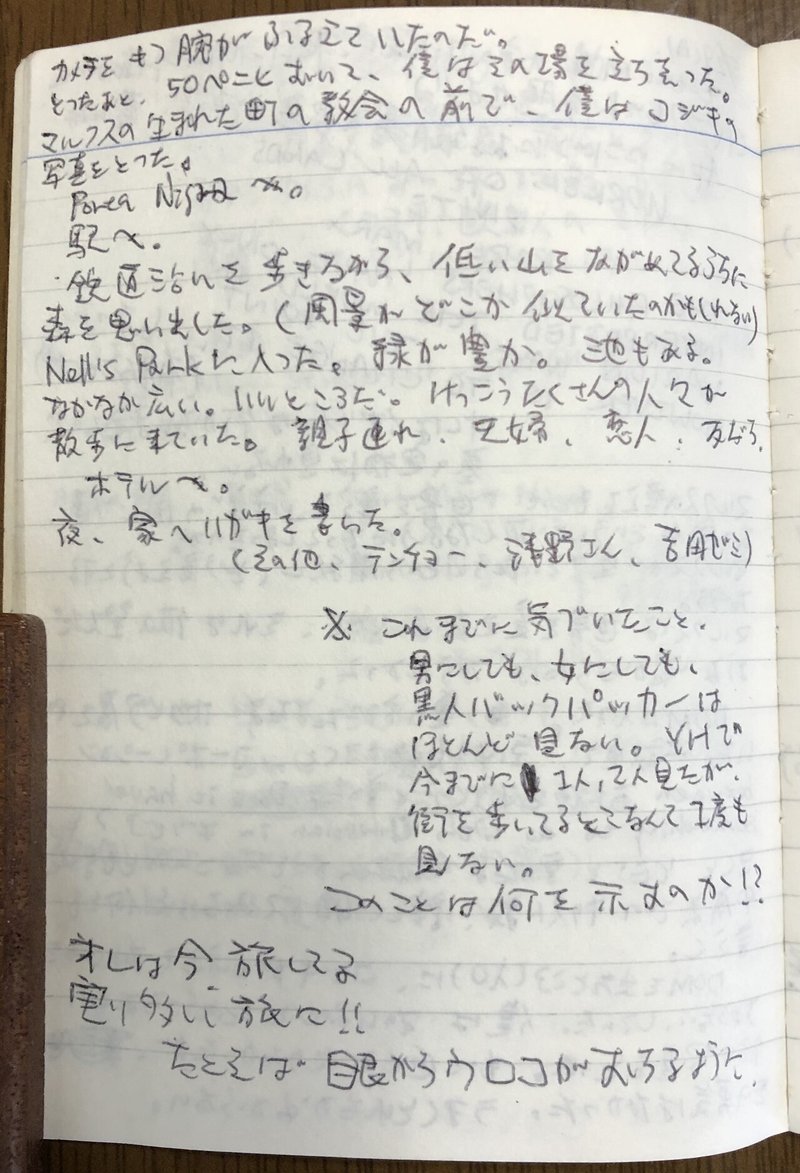 カメラをもつ腕がふるえていたのだ。
とったあと、50ペニヒおいて、僕はその場を立ち去った。
マルクスの生まれた町の教会の前で、僕はコジキの
写真をとった。
Porta Nigraへ。
駅へ。
鉄道沿いを歩きながら、低い山をながめてるうちに
森を思い出した。(風景がどこか似ていたのかもしれない)
Nell's Parkに入った。緑が豊か。池もある。
なかなか広い。いいところだ。けっこうたくさんの人々が
散歩に来ていた。親子連れ、夫婦、恋人、友だち。
ホテルへ。
夜、家へハガキを書いた。
(その他、テンチョー、浅野さん、吉田ゼミ)
※ これまでに気づいたこと。
男にしても、女にしても、
黒人バックパッカーは
ほとんど見ない。YHで
今までに1人、2人見たが、
街を歩いてるとこなんて1度も
見ない。
このことは何を示すのか!?
オレは今旅してる
実り多い旅に!!
たとえば眼からウロコがおちるように。